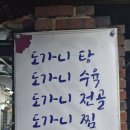 도가니 탕
도가니 수육
도가니 전골
도가니 찜